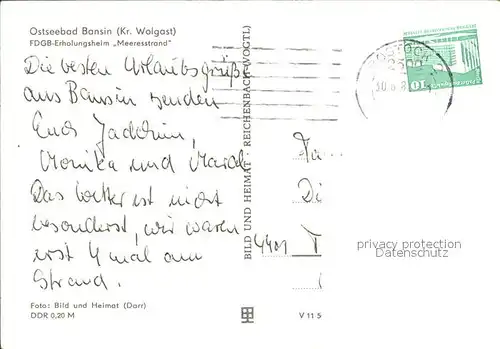 Ostseebad Bansin (Kr. Wolgast)
FDGB-Erholungsheim „Meeresstrand"
Die besten Urlaubsgrüße
aus Bansin senden
Euch
Monika und
Das Wetter ist nicht
besonderst, wir waren
erst 4 mal am
Strand.
Foto: Bild und Heimat (Darr)
DDR 0,20 M
BILD UND HEIMAT · REICHENBACH (VOGTL)
Di
4401
V 11 5
10
privacy protection
Datenschutz